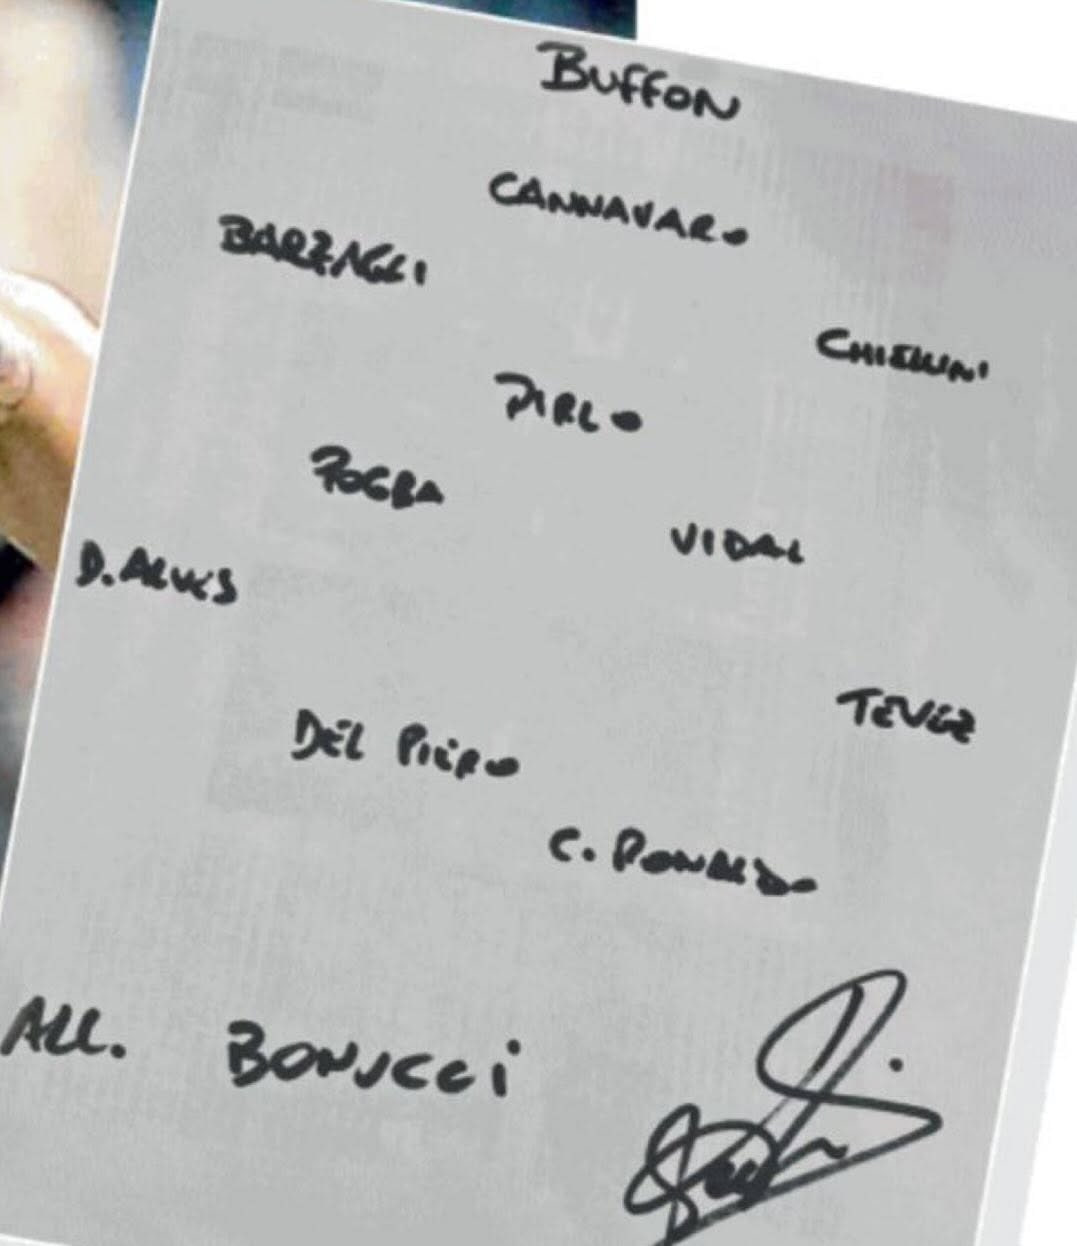 BUFFON
CANNAVARO
BARZAGLI
CHIELLINI
PIRLO
POGBA
VIDAL
D. ALVES
TEVEZ
DEL PIERO
C. RONALDO
ALL. BONUCCI